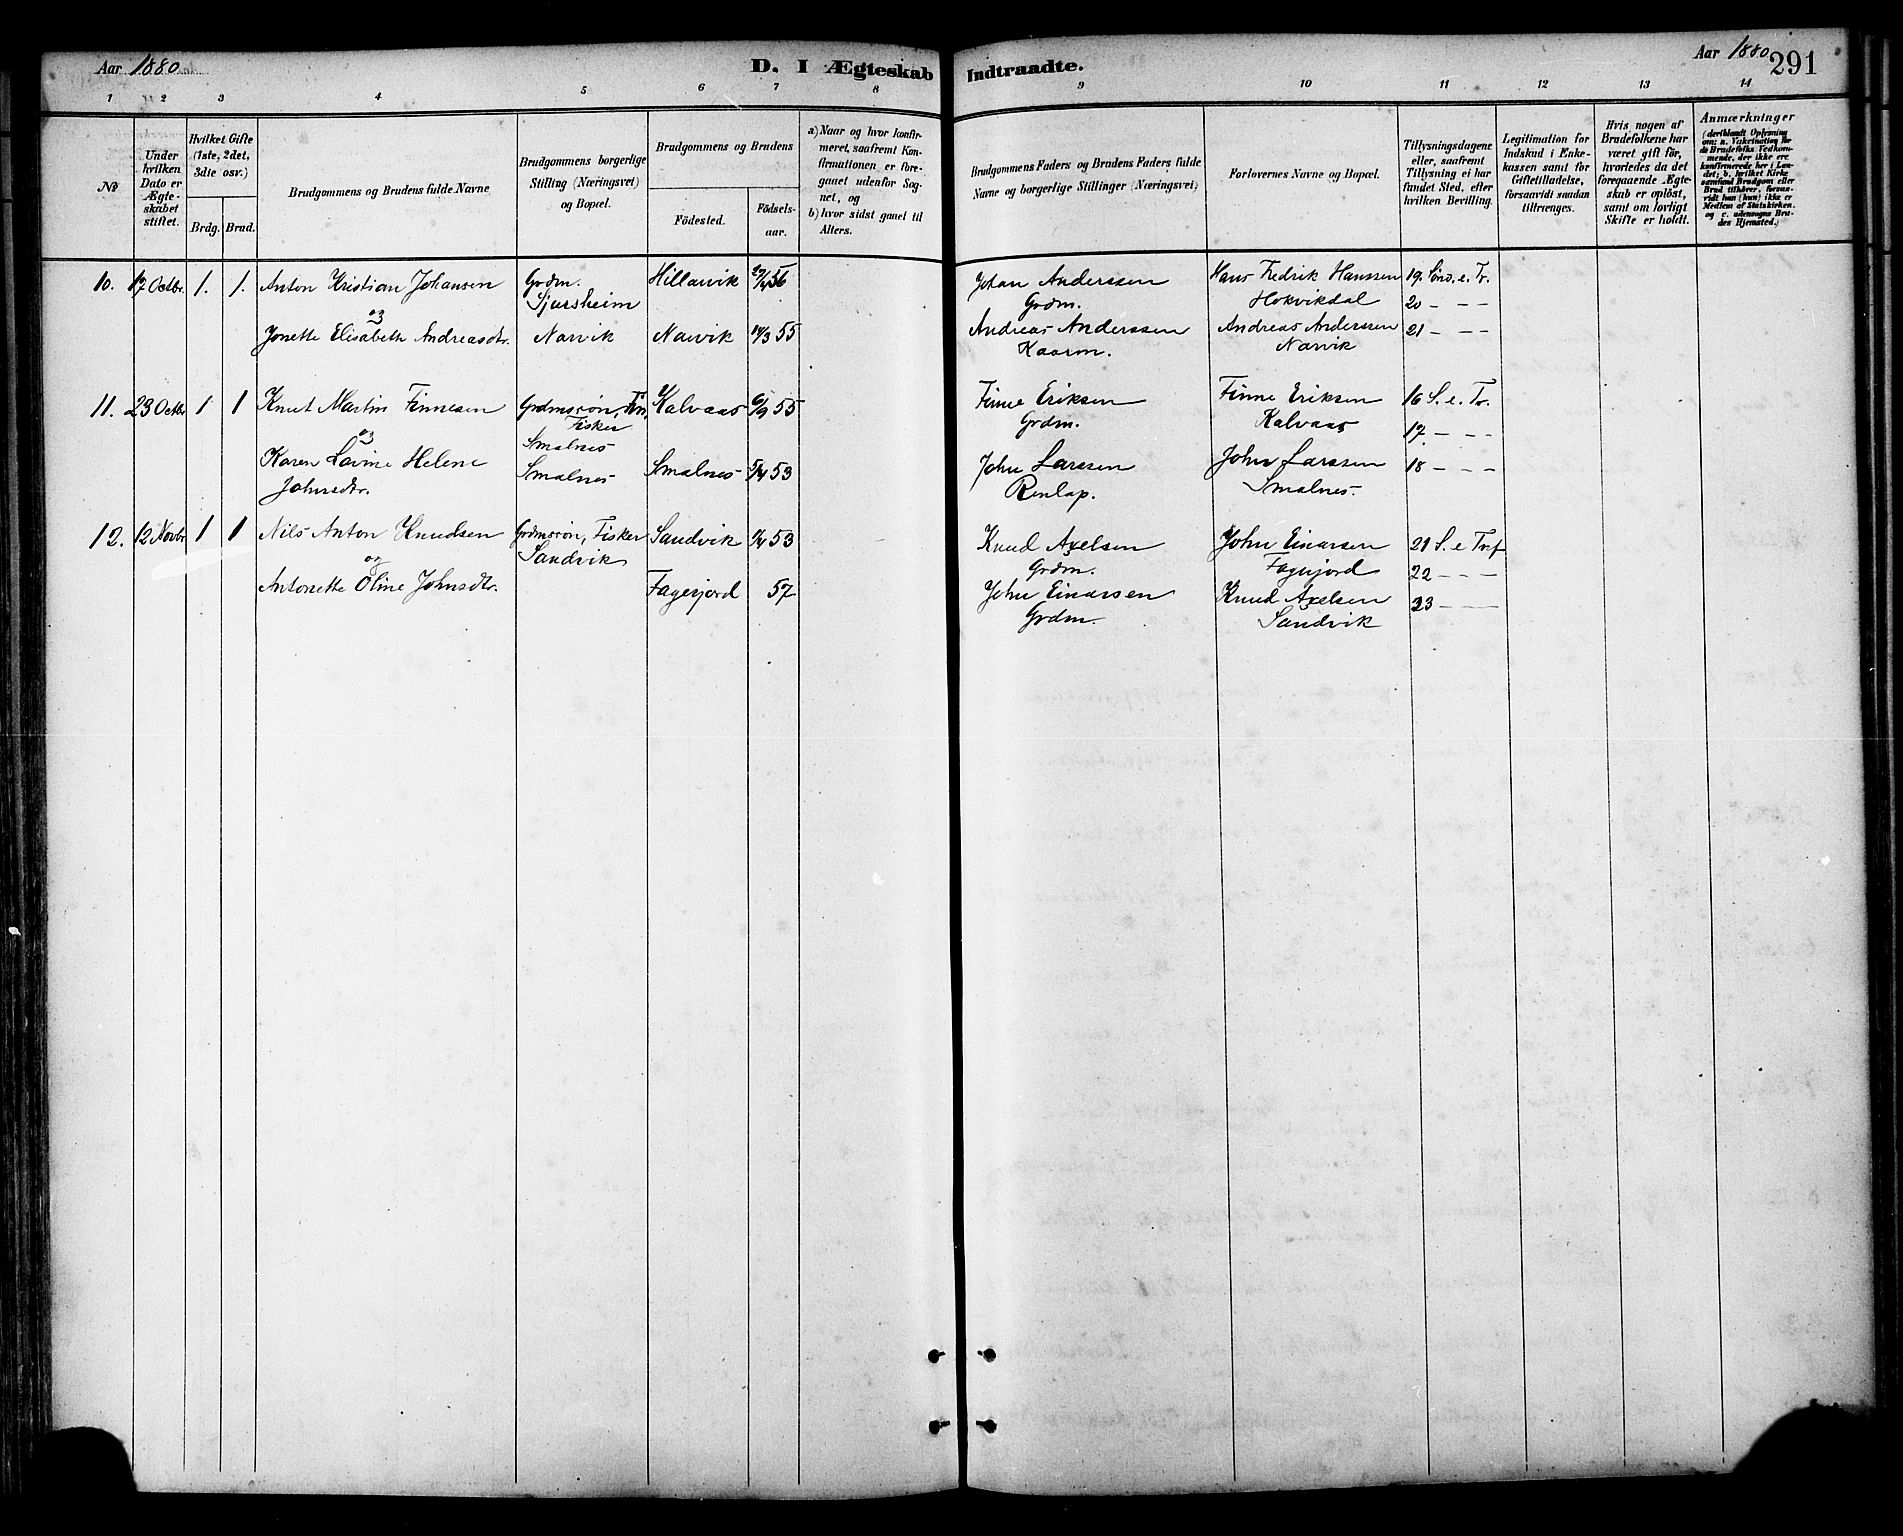 Aar 1880
D. I Ægteskab Indtraadte.
Aar 1880
291
1 2 3 4 5 6 7 8 9 10 11 12 13 14
No
Under
hvilken
Dato er
Ægte-
skabet
stiftet.
Hvilket Gifte
(1ste, 2det,
3die osv.)
Brdg. Brud.
Brudgommens og Brudens fulde Navne
Brudgommens borgerlige
Stilling (Næringsvei)
og Bopæl.
Brudgommens og Brudens
Födested.
Födsels-
aar.
a) Naar og hvor konfir-
meret, saafremt Kon-
firmationen er fore-
gaaet udenfor Sog-
net, og
b) hvor sidst gaaet til
Alters.
Brudgommens Faders og Brudens Faders fulde
Navne og borgerlige Stillinger (Næringsvei)
Forlovernes Navne og Bopæl.
Tillysningsdagene
eller, saafremt
Tillysning ei har
fundet Sted, efter
hvilken Bevilling.
Legitimation for
Indskud i Enke-
kassen samt for
Giftetilladelse,
forsaavidt saadan
tiltrænges.
Hvis nogen af
Brudefolkene har
været gift för,
hvorledes da det
foregaaende Ægte-
skab er oplöst,
samt om lovligt
Skifte er holdt.
Anmærkninger
(deriblandt Oplysning
om: a. Vakcination for
de Brudefolks Vedkom-
mende, der ikke ere
konfirmerede her i Lan-
det; b. hvilket Kirke-
samfund Brudgom eller
Brud tilhörer, forsaa-
vidt han (hun) ikke er
Medlem af Statskirken,
og c. udensogns Bru-
des Hjemsted.)
10. 17 Octbr. 1. 1. Anton Kristian Johansen Grdm. Hillarvik 27/4 56 Johan Anderssen Hans Fredrik Hanssen 19. Sønd. e. Tr.
Sjursheim Grdm. Hokvikdal 20 - - -
og
Jonette Elisabeth Andreasdtr. Narvik Narvik 14/3 55 Andreas Anderssen Andreas Anderssen 21 - - -
Kaarm. Narvik
11. 23 Octbr 1 1 Knut Martin Finnesen Grdmsøn, Fin, Kalvaas 6/9 55 Finne Eriksen Finne Eriksen 16 S. e. Tr.
Fisker Grdm. Kalvaas 17. - - -
og Smalnes
Karen Lovine Helene Smalnes Smalnes 5/4 53 John Larssen John Larssen 18 - - -
Johnsdtr. Renlap. Smalnes.
12. 12 Novbr 1 1 Nils Anton Knudsen Grdmsøn, Fisker Sandvik 1/4 53 Knud Axelsen John Einarsen 21 S. e Tref
og Sandvik Grdm. Fagerjord 22 - - -
Antonette Oline Johnsdtr. Fagerjord 57 John Einarsen Knud Axelsen 23 - - -
Grdm. Sandvik